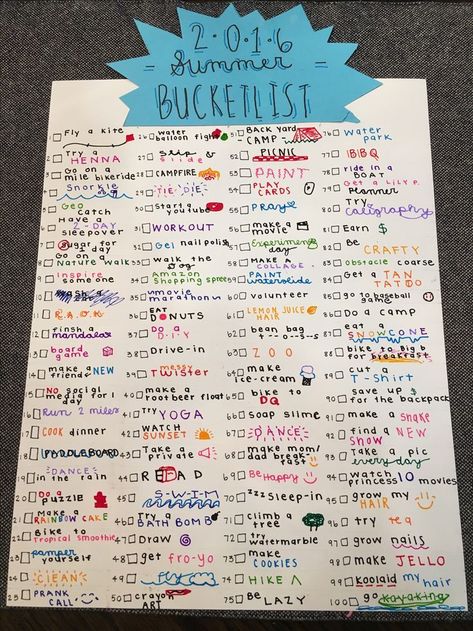 2·0·1·6
Summer
BUCKETLIST
1 Fly a kite
2 Try a
HENNA
3 Go on a
mile bikeride
4 Snorkle
5 GEO
catch
6 Have a
2-DAY
sleepover
7 sugar for
a day
8 Go on a
Nature walk
9 Inspire
someone
10
11 R.A.O.K
12 finish a
mandalas
13 board
game
14 make a NEW
friend
15 NO social
media for 1
day
16 Run 2 miles
17 COOK dinner
18 PADDLEBOARD
19 DANCE
in the rain
20 Do a
puzzle
21 Make a
RAINBOW CAKE
22 Bike to
tropical smoothie
23 pamper
yourself
24 CLEAN
25 PRANK
CALL
26 water
balloon fight
27 slip &
slide
28 CAMPFIRE
29 TIE DIE
30 Start a
youtube
31 WORKOUT
32 Gel nail polish
33 walk the
dog
34 Amazon
shopping spree
35 movie
marathon
36 EAT
DONUTS
37 Do a
D.I.Y
38 Drive-in
39 messy
TWISTER
40 make a
rootbeer float
41 Try YOGA
42 WATCH
SUNSET
43 Take a
private
44 READ
45 S-W-I-M
46 Try a
BATH BOMB
47 Draw
48 get fro-yo
49
50 crayon
ART
51 BACK yard
-CAMP-
52 PICNIC
53 PAINT
54 PLAY
CARDS
55 PRAY
56 make a
movie
57 Experiment
day
58 MAKE A
COLLAGE
59 PAINT
waterslide
60 volunteer
61 LEMON JUICE
HAIR
62 bean bag
t-o-s-s
63 ZOO
64 make
ice-cream
65 bike to
DQ
66 soap slime
67 DANCE
68 make mom/
dad break-
fast
69 Be Happy
70 zzz sleep-in
71 climb a
tree
72 Try
watermarble
73 make
COOKIES
74 HIKE
75 Be LAZY
76 Water
park
77 BBQ
78 ride in a
BOAT
79 Get a Lily P.
planner
80 Try
caligraphy
81 Earn $
82 Be
CRAFTY
83 obstacle coarse
84 Get a TAN
TATOO
85 go to baseball
game
86 Do a camp
87 eat a
SNOWCONE
88 bike to Big b
for breakfast
89 cut a
T-shirt
90 save up $
for the backpack
91 make a shake
92 find a NEW
show
93 Take a pic
every day
94 Watch
princess 10 movies
95 grow my
96 try tea
97 grow nails
98 make JELLO
99 koolaid my
hair
100 go kayaking